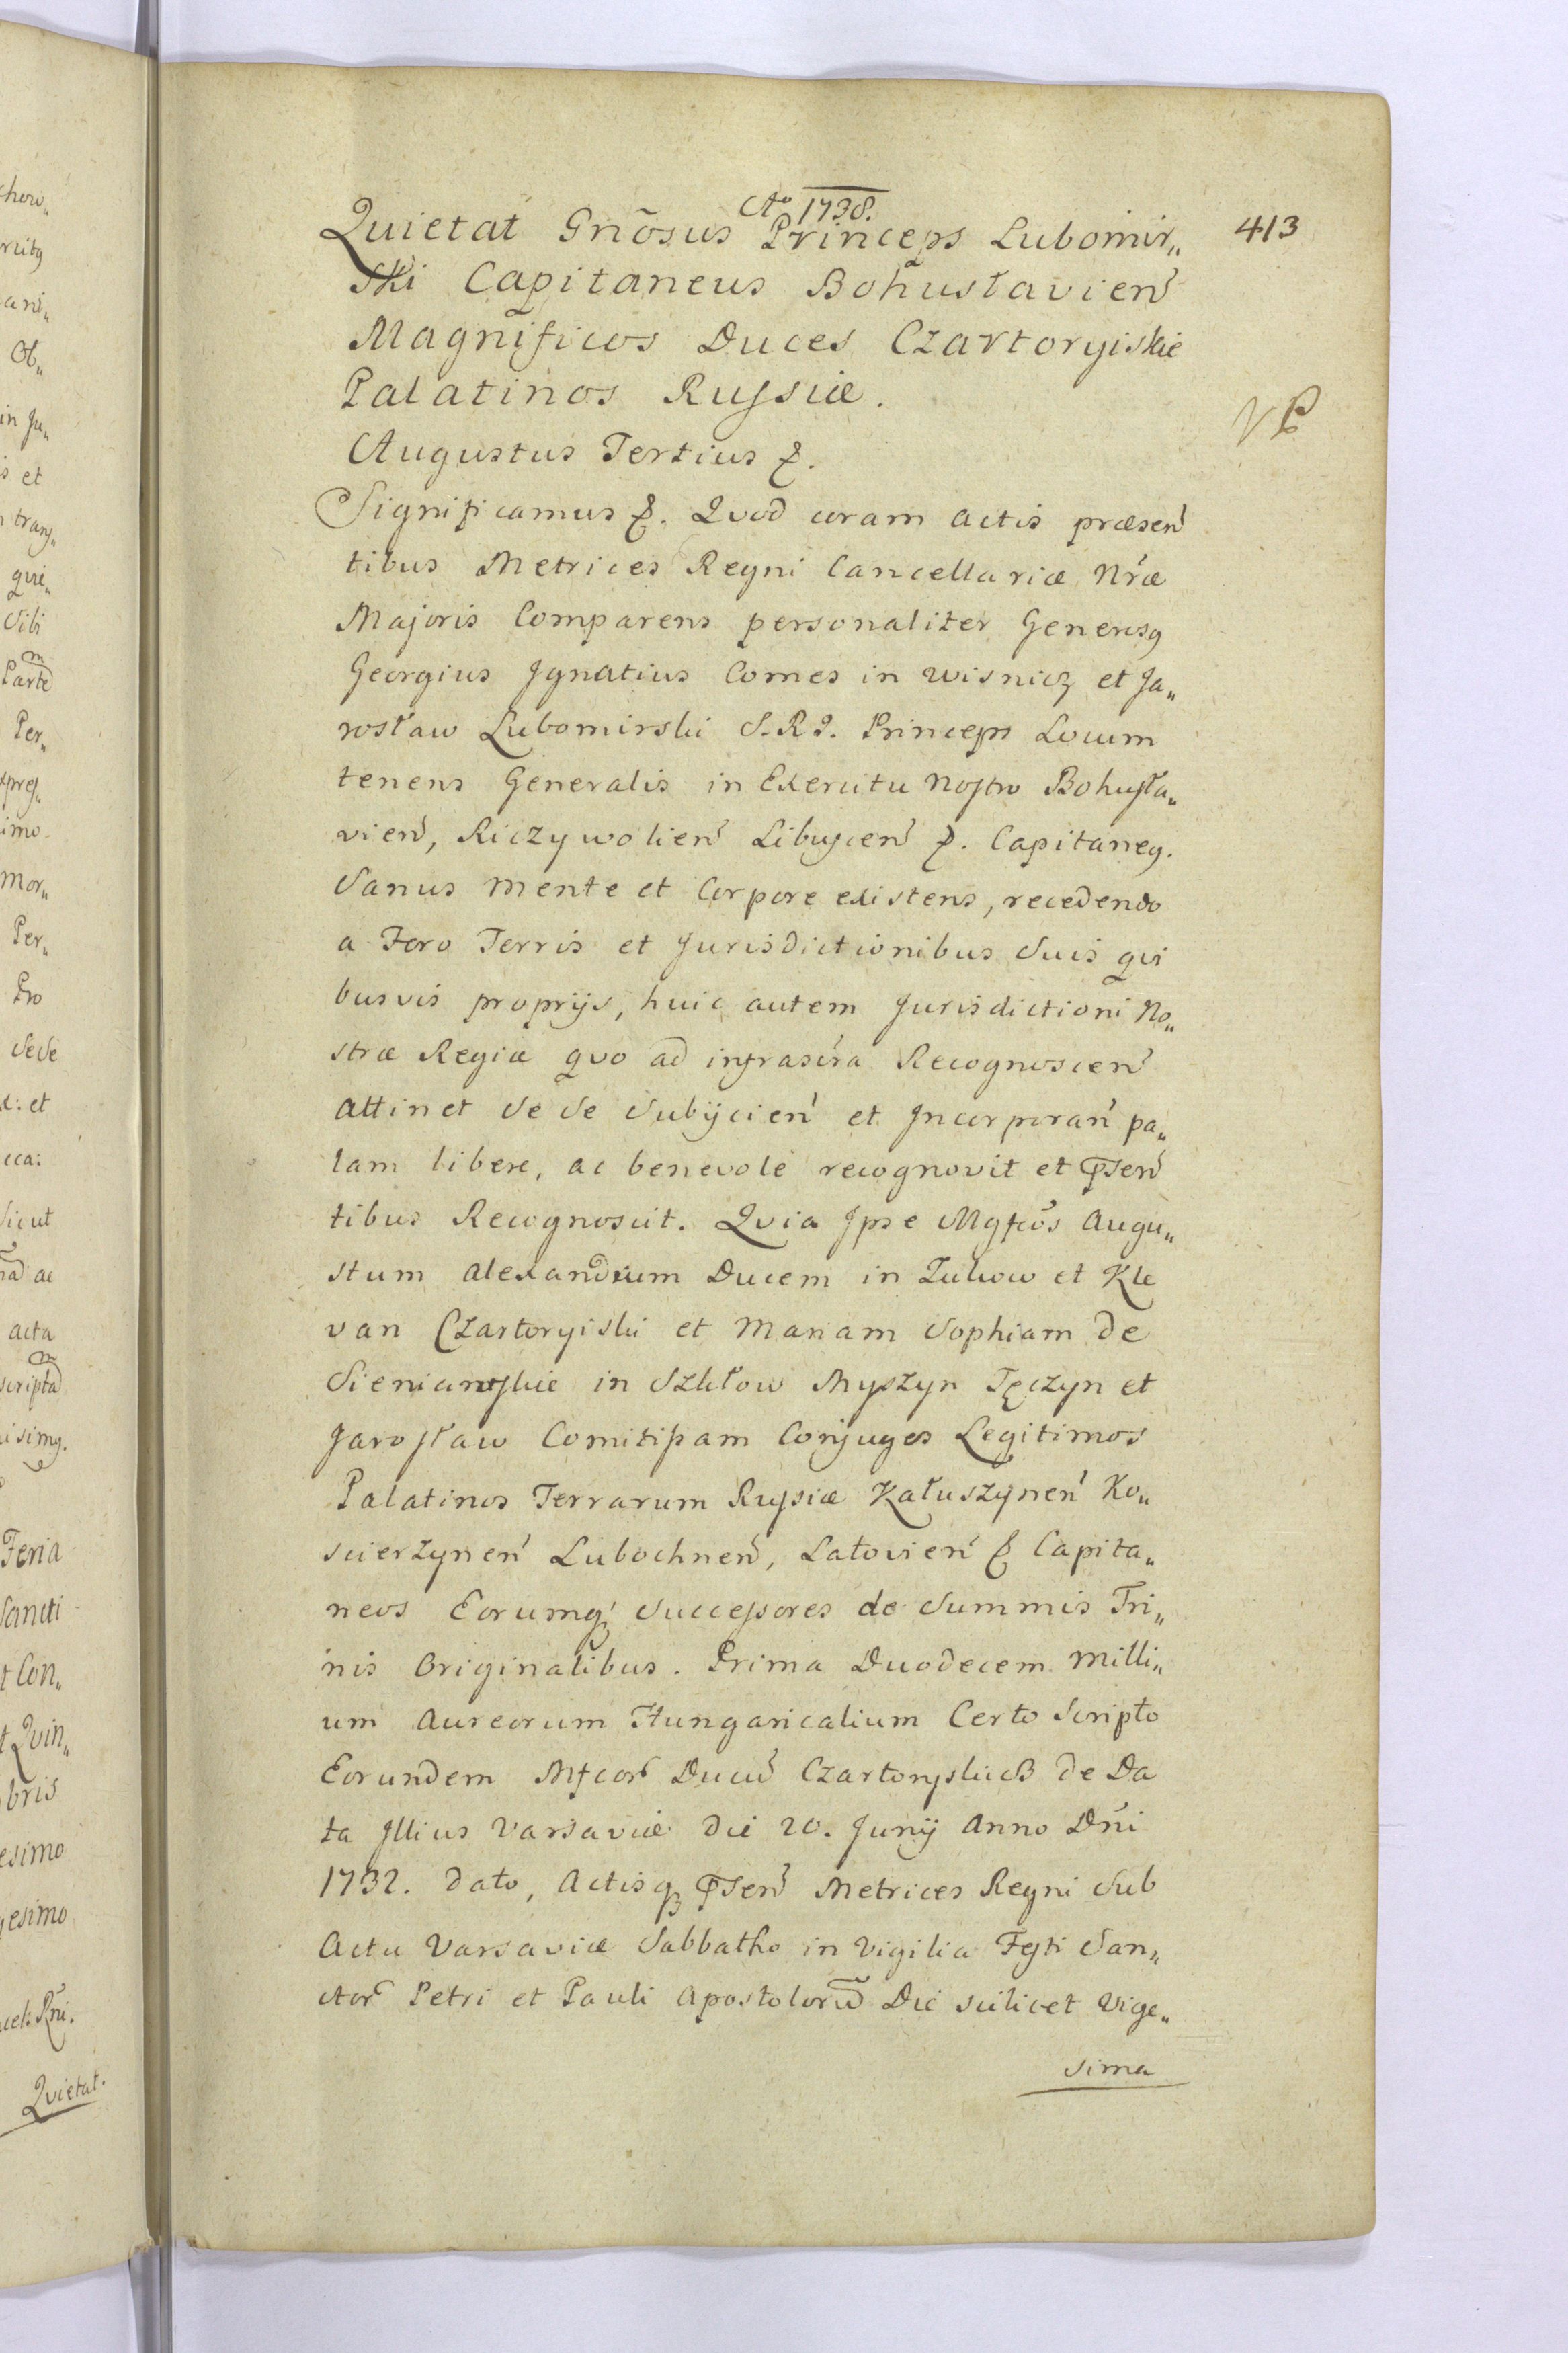 Ao 1738.
413
Quietat Gnõsus Princeps Lubomir„
ski Capitaneus Bohusłavien̄
Magnificos Duces Czartoryiskie
Palatinos Russiæ.
Augustus Tertius &.
Significamus &. Quod coram actis præsen̄
tibus Metrices Regni Cancellariæ Nr̃æ
Majoris Comparens personaliter Generosg
Georgius Ignatius Comes in Wisnicz et Ja„
rosław Lubomirski S.R.I. Princeps Locum
tenens Generalis in Exercitu Nostro Bohusła„
vien̄, Riczywolien̄ Libuscen̄ &. Capitaneg.
Sanus mente et Corpore existens, recedendo
a Foro Terris et Jurisdictionibus Suis qui
busvis proprijs, huic autem Jurisdictioni No„
stræ Regiæ quo ad infrascr̃a Recognoscen̄
attinet Se Se Subijcien̄ et Incorporan̄ pa„
lam libere, ac benevole recognovit et Psen̄
tibus Recognoscit. Quia Ipse Mgfcõs Augu„
stum Alexandrum Ducem in Zukow et Kle
van Czartoryiski et Mariam Sophiam de
Sieniawskie in Szkłow Myszyn Tęczyn et
Jarosław Comitissam Conjuges Legitimos
Palatinos Terrarum Russiæ Kałuszynen̄ Ko„
scierzynen̄ Lubochnen̄, Latovien̄ & Capita„
neos Eorumq; Successores de Summis Tri„
nis Originalibus. Prima Duodecem milli„
um Aureorum Hungaricalium Certo Scripto
Eorundem Mfcor̃ Ducũ Czartoryskich de Da
ta Illius Varsaviæ die 20. Junij Anno Dñi
1732. dato, Actisq; Psen̄ Metrices Regni Sub
Actu Varsaviæ Sabbatho in Vigilia Festi San„
ctor̃ Petri et Pauli Apostolorũ Die scilicet Vige„
sima